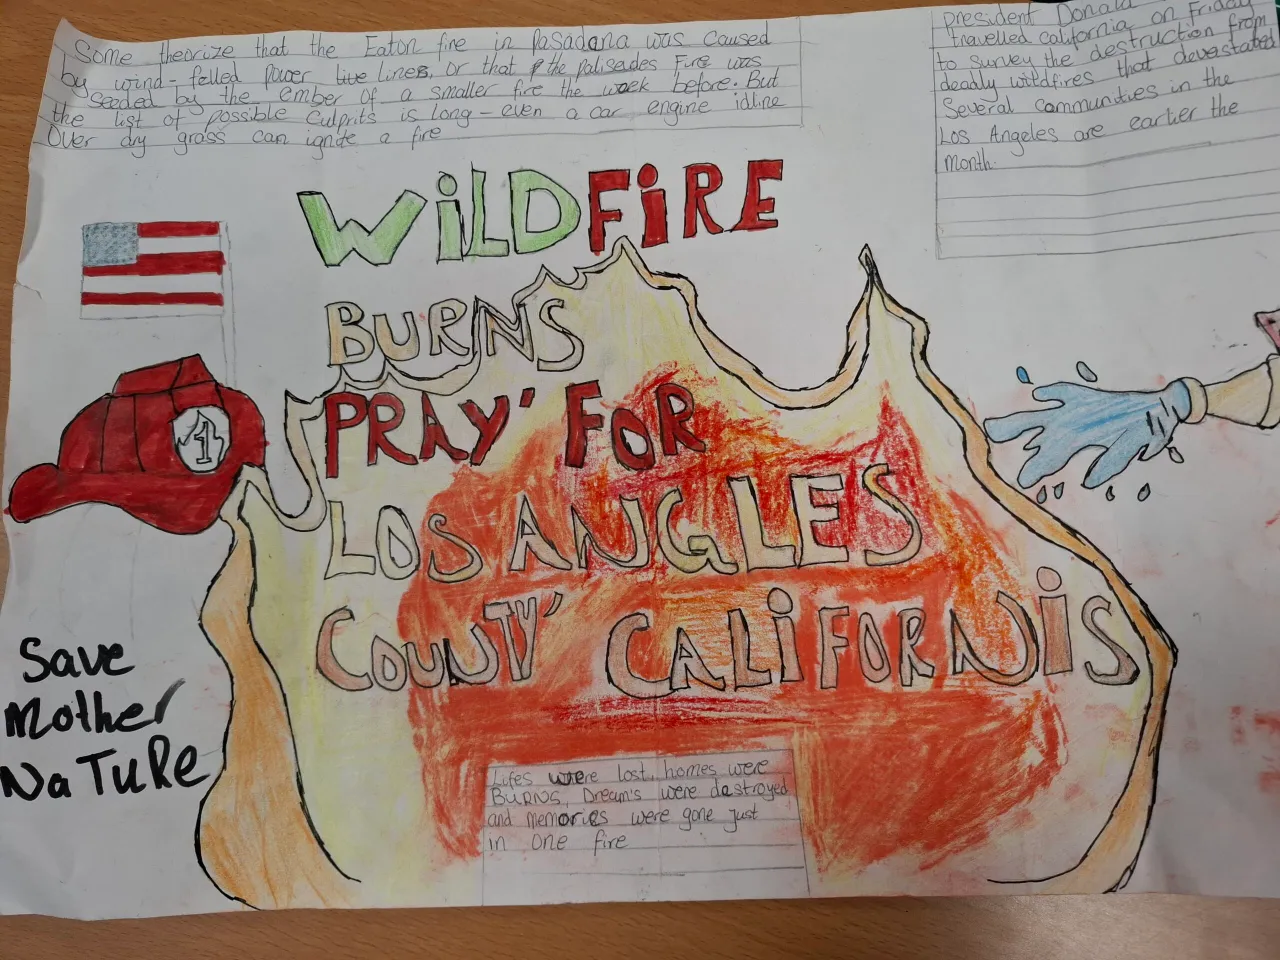 Some theorize that the Eaton fire in Pasadena was caused
by wind-felled power live lines, or that the palisades Fire was
seeded by the ember of a smaller fire the week before. But
the list of possible culprits is long-even a car engine idline
Over dry grass can ignite a fire
President Donald
travelled california on Friday
to survey the destruction from
deadly wildfires that devastated
Several communities in the
Los Angeles are earlier the
month.
WiLDFiRE
BURNS
PRAY' FOR
LOS ANGLES
COUNTY' CALiFORNiS
1
Save
Mother
NaTuRe
Lifes were lost, homes were
BURNS, Dream's were destroyed
and memories were gone just
in one fire